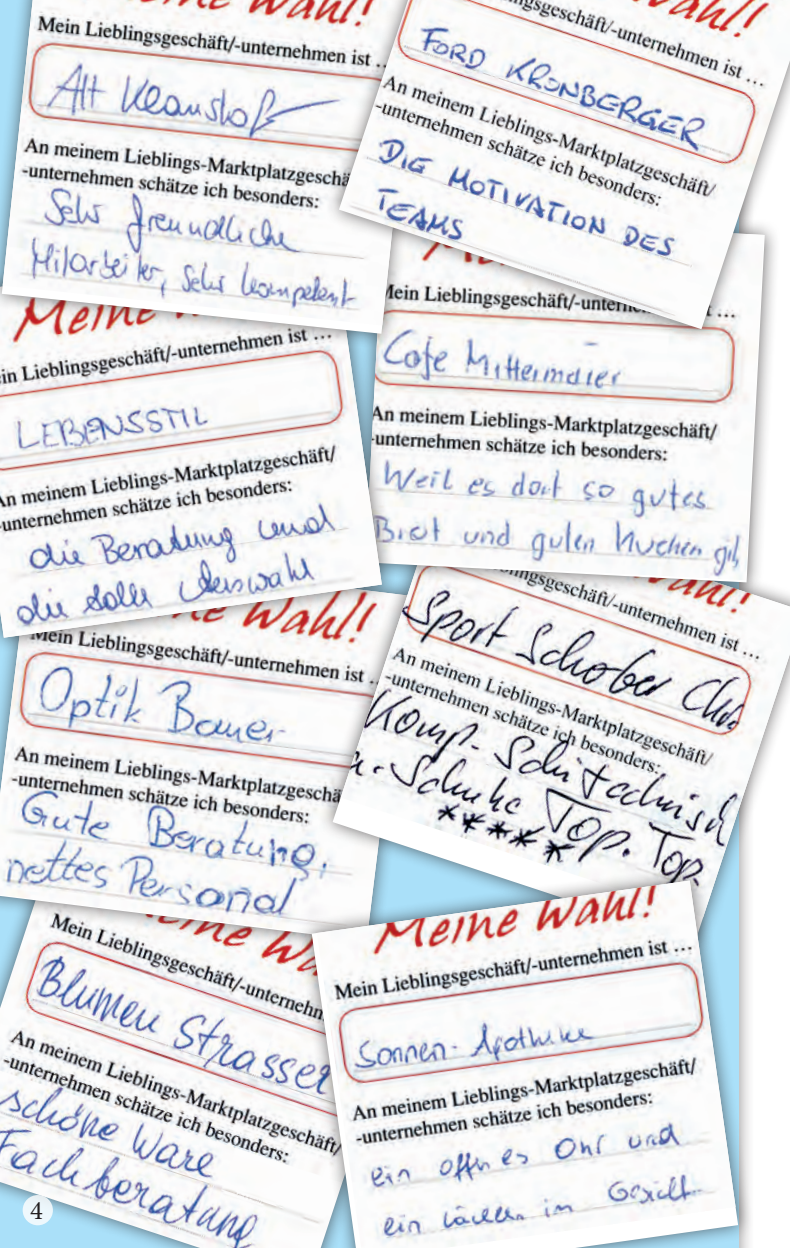 Meine Wahl!
Mein Lieblingsgeschäft/-unternehmen ist ...
An meinem Lieblings-Marktplatzgeschä
-unternehmen schätze ich besonders:
Sehr freundliche
Mitarbeiter, sehr kompetent
Wahl!
-ingsgeschäft/-unternehmen ist ...
FORD KRONBERGER
An meinem Lieblings-Marktplatzgeschäft/
-unternehmen schätze ich besonders:
DIE MOTIVATION DES
TEAMS
Meine
in Lieblingsgeschäft/-unternehmen ist ...
LEBENSSTIL
An meinem Lieblings-Marktplatzgeschäft/
-unternehmen schätze ich besonders:
die Beratung und
die tolle Auswahl
Mein Lieblingsgeschäft/-unterneh ...
Cafe Mittermaier
An meinem Lieblings-Marktplatzgeschäft/
-unternehmen schätze ich besonders:
Weil es dort so gutes
Brot und guten Kuchen gib
Wahl!
Mein Lieblingsgeschäft/-unternehmen ist ..
Optik Bauer
An meinem Lieblings-Marktplatzgeschä
-unternehmen schätze ich besonders:
Gute Beratung,
nettes Personal
Wahl!
lingsgeschäft/-unternehmen ist ...
Sport Schober
An meinem Lieblings-Marktplatzgeschäft/
-unternehmen schätze ich besonders:
Komp. Schitechnisch
Schuhe Top. Top.
*****
Meine Wa
Mein Lieblingsgeschäft/-unternehm
Blumen Strasser
An meinem Lieblings-Marktplatzgeschäft/
-unternehmen schätze ich besonders:
schöne Ware
Fachberatung
Meine Wahl!
Mein Lieblingsgeschäft/-unternehmen ist ...
Sonnen-Apotheke
An meinem Lieblings-Marktplatzgeschäft/
-unternehmen schätze ich besonders:
ein offnes Ohr und
ein lächeln im Gesicht
4